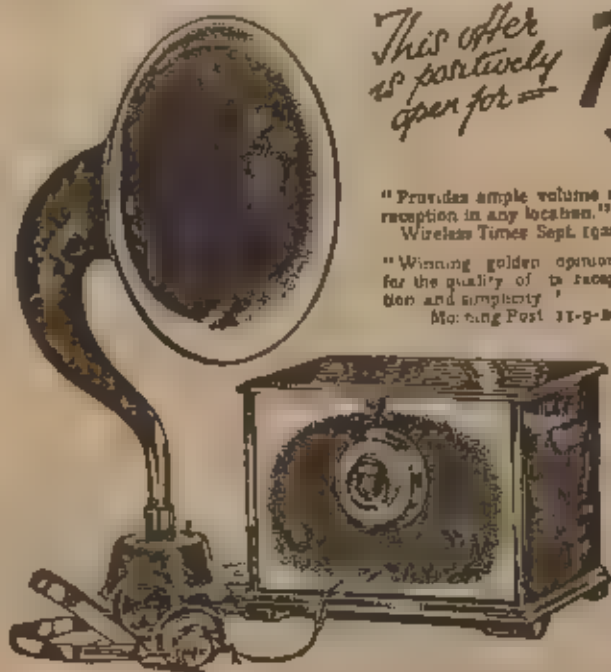 This offer
is positively
open for
"Provides ample volume
reception in any location."
Wireless Times Sept.
"Winning golden
for the quality of
tion and simplicity
Morning Post